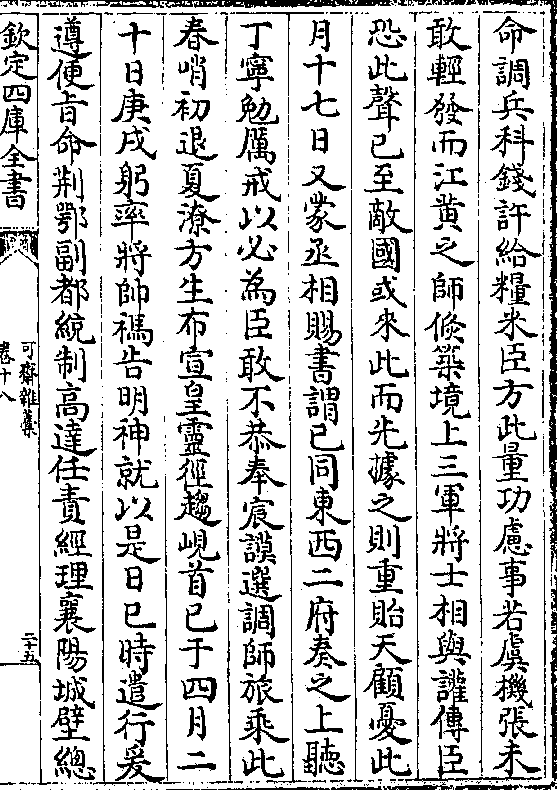 命調兵科錢許給糧米臣方此量功慮事若虞機張未
敢輕發而江黄之師倐築境上三軍將士相與讙傳臣
恐此聲已至敵國或來此而先據之則重貽天顧憂此
月十七日又蒙丞相賜書謂已同東西二府奏之上聽
丁寧勉厲戒以必為臣敢不恭奉宸謨選調師旅乘此
春哨初退夏潦方生布宣皇靈徑趨峴首已于四月二
十日庚戌躬率將帥禡告明神就以是日巳時遣行爰
遵便㫖命荆鄂副都統制高達任責經理襄陽城壁總
欽定四庫全書
可齋雜藁
卷十八
二十五